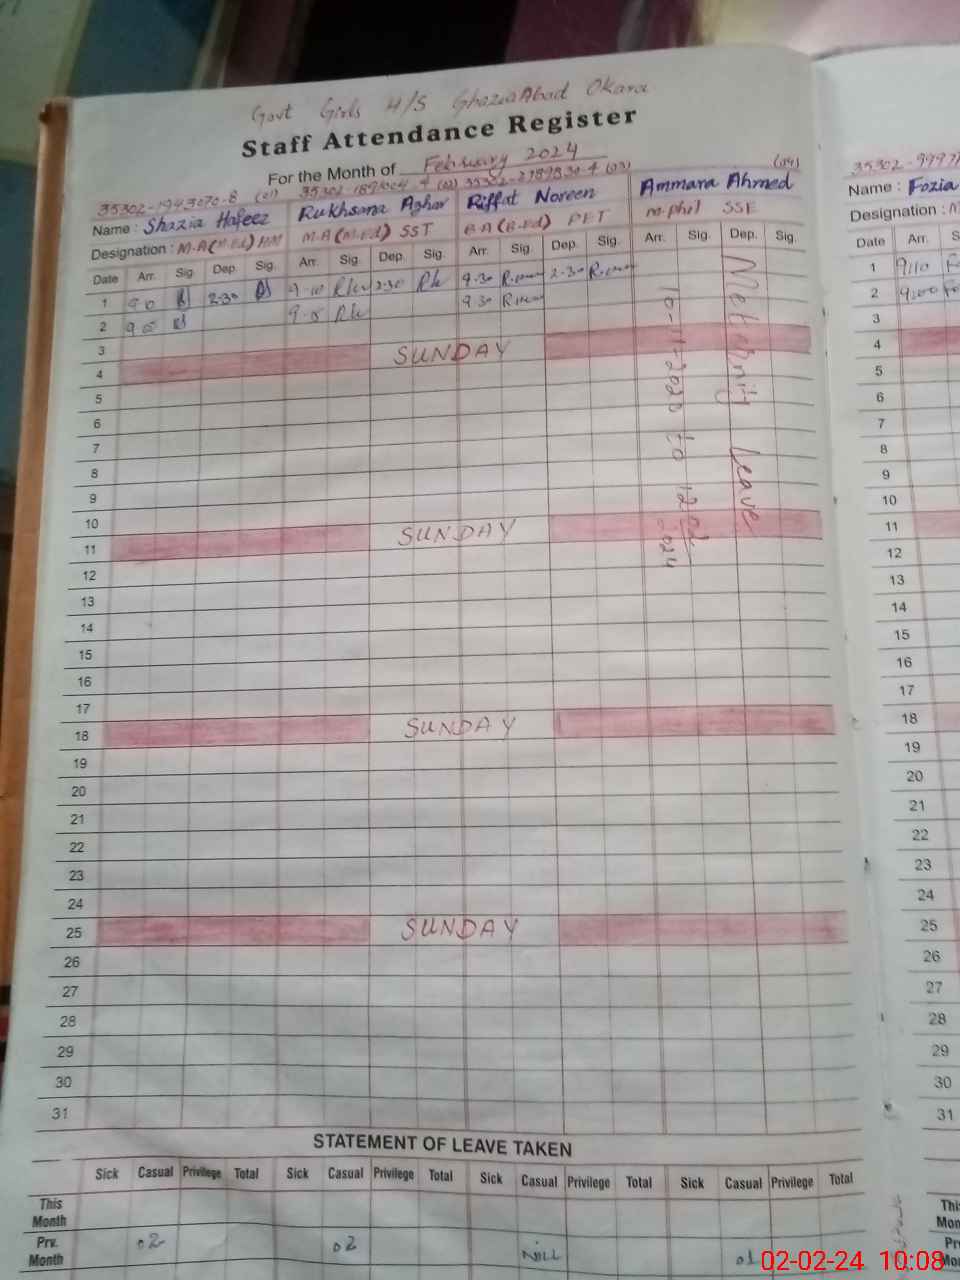 Govt Girls H/S GhaziaAbad Okara
Staff Attendance Register
For the Month of February 2024
35302-1943070-8 (01) (02) (03) (04)
Name : Shazia Hafeez Rukhsana Azhar Riffat Noreen Ammara Ahmed
Designation : M.A(M.Ed) HM M.A(M.Ed) SST B.A(B.Ed) PET m.phil SSE
Date Arr. Sig. Dep. Sig. Arr. Sig. Dep. Sig. Arr. Sig. Dep. Sig. Arr. Sig. Dep. Sig.
1 9-0 2-30 9-10 2-30 9-30 2-30
2 9-0 9-5 9-30
3
4 SUNDAY
5
6
7
8
9
10
11 SUNDAY
12
13
14
15
16
17
18 SUNDAY
19
20
21
22
23
24
25 SUNDAY
26
27
28
29
30
31
Leave
to
STATEMENT OF LEAVE TAKEN
Sick Casual Privilege Total Sick Casual Privilege Total Sick Casual Privilege Total Sick Casual Privilege Total
This Month
Prv. Month 02 02 NILL 01
Name : Fozia
Designation :
Date Arr.
1
2
3
4
5
6
7
8
9
10
11
12
13
14
15
16
17
18
19
20
21
22
23
24
25
26
27
28
29
30
31
02-02-24 10:08